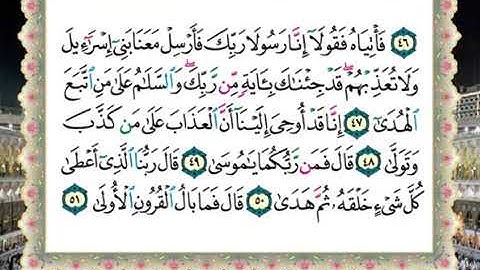 ٤٦ فَأْتِيَاهُ فَقُولَآ إِنَّا رَسُولَا رَبِّكَ فَأَرْسِلْ مَعَنَا بَنِىٓ إِسْرَٰٓءِيلَ
وَلَا تُعَذِّبْهُمْ ۖ قَدْ جِئْنَٰكَ بِـَٔايَةٍ مِّن رَّبِّكَ ۖ وَٱلسَّلَٰمُ عَلَىٰ مَنِ ٱتَّبَعَ
ٱلْهُدَىٰٓ ٤٧ إِنَّا قَدْ أُوحِىَ إِلَيْنَآ أَنَّ ٱلْعَذَابَ عَلَىٰ مَن كَذَّبَ
وَتَوَلَّىٰ ٤٨ قَالَ فَمَن رَّبُّكُمَا يَٰمُوسَىٰ ٤٩ قَالَ رَبُّنَا ٱلَّذِىٓ أَعْطَىٰ
كُلَّ شَىْءٍ خَلْقَهُۥ ثُمَّ هَدَىٰ ٥٠ قَالَ فَمَا بَالُ ٱلْقُرُونِ ٱلْأُولَىٰ ٥١